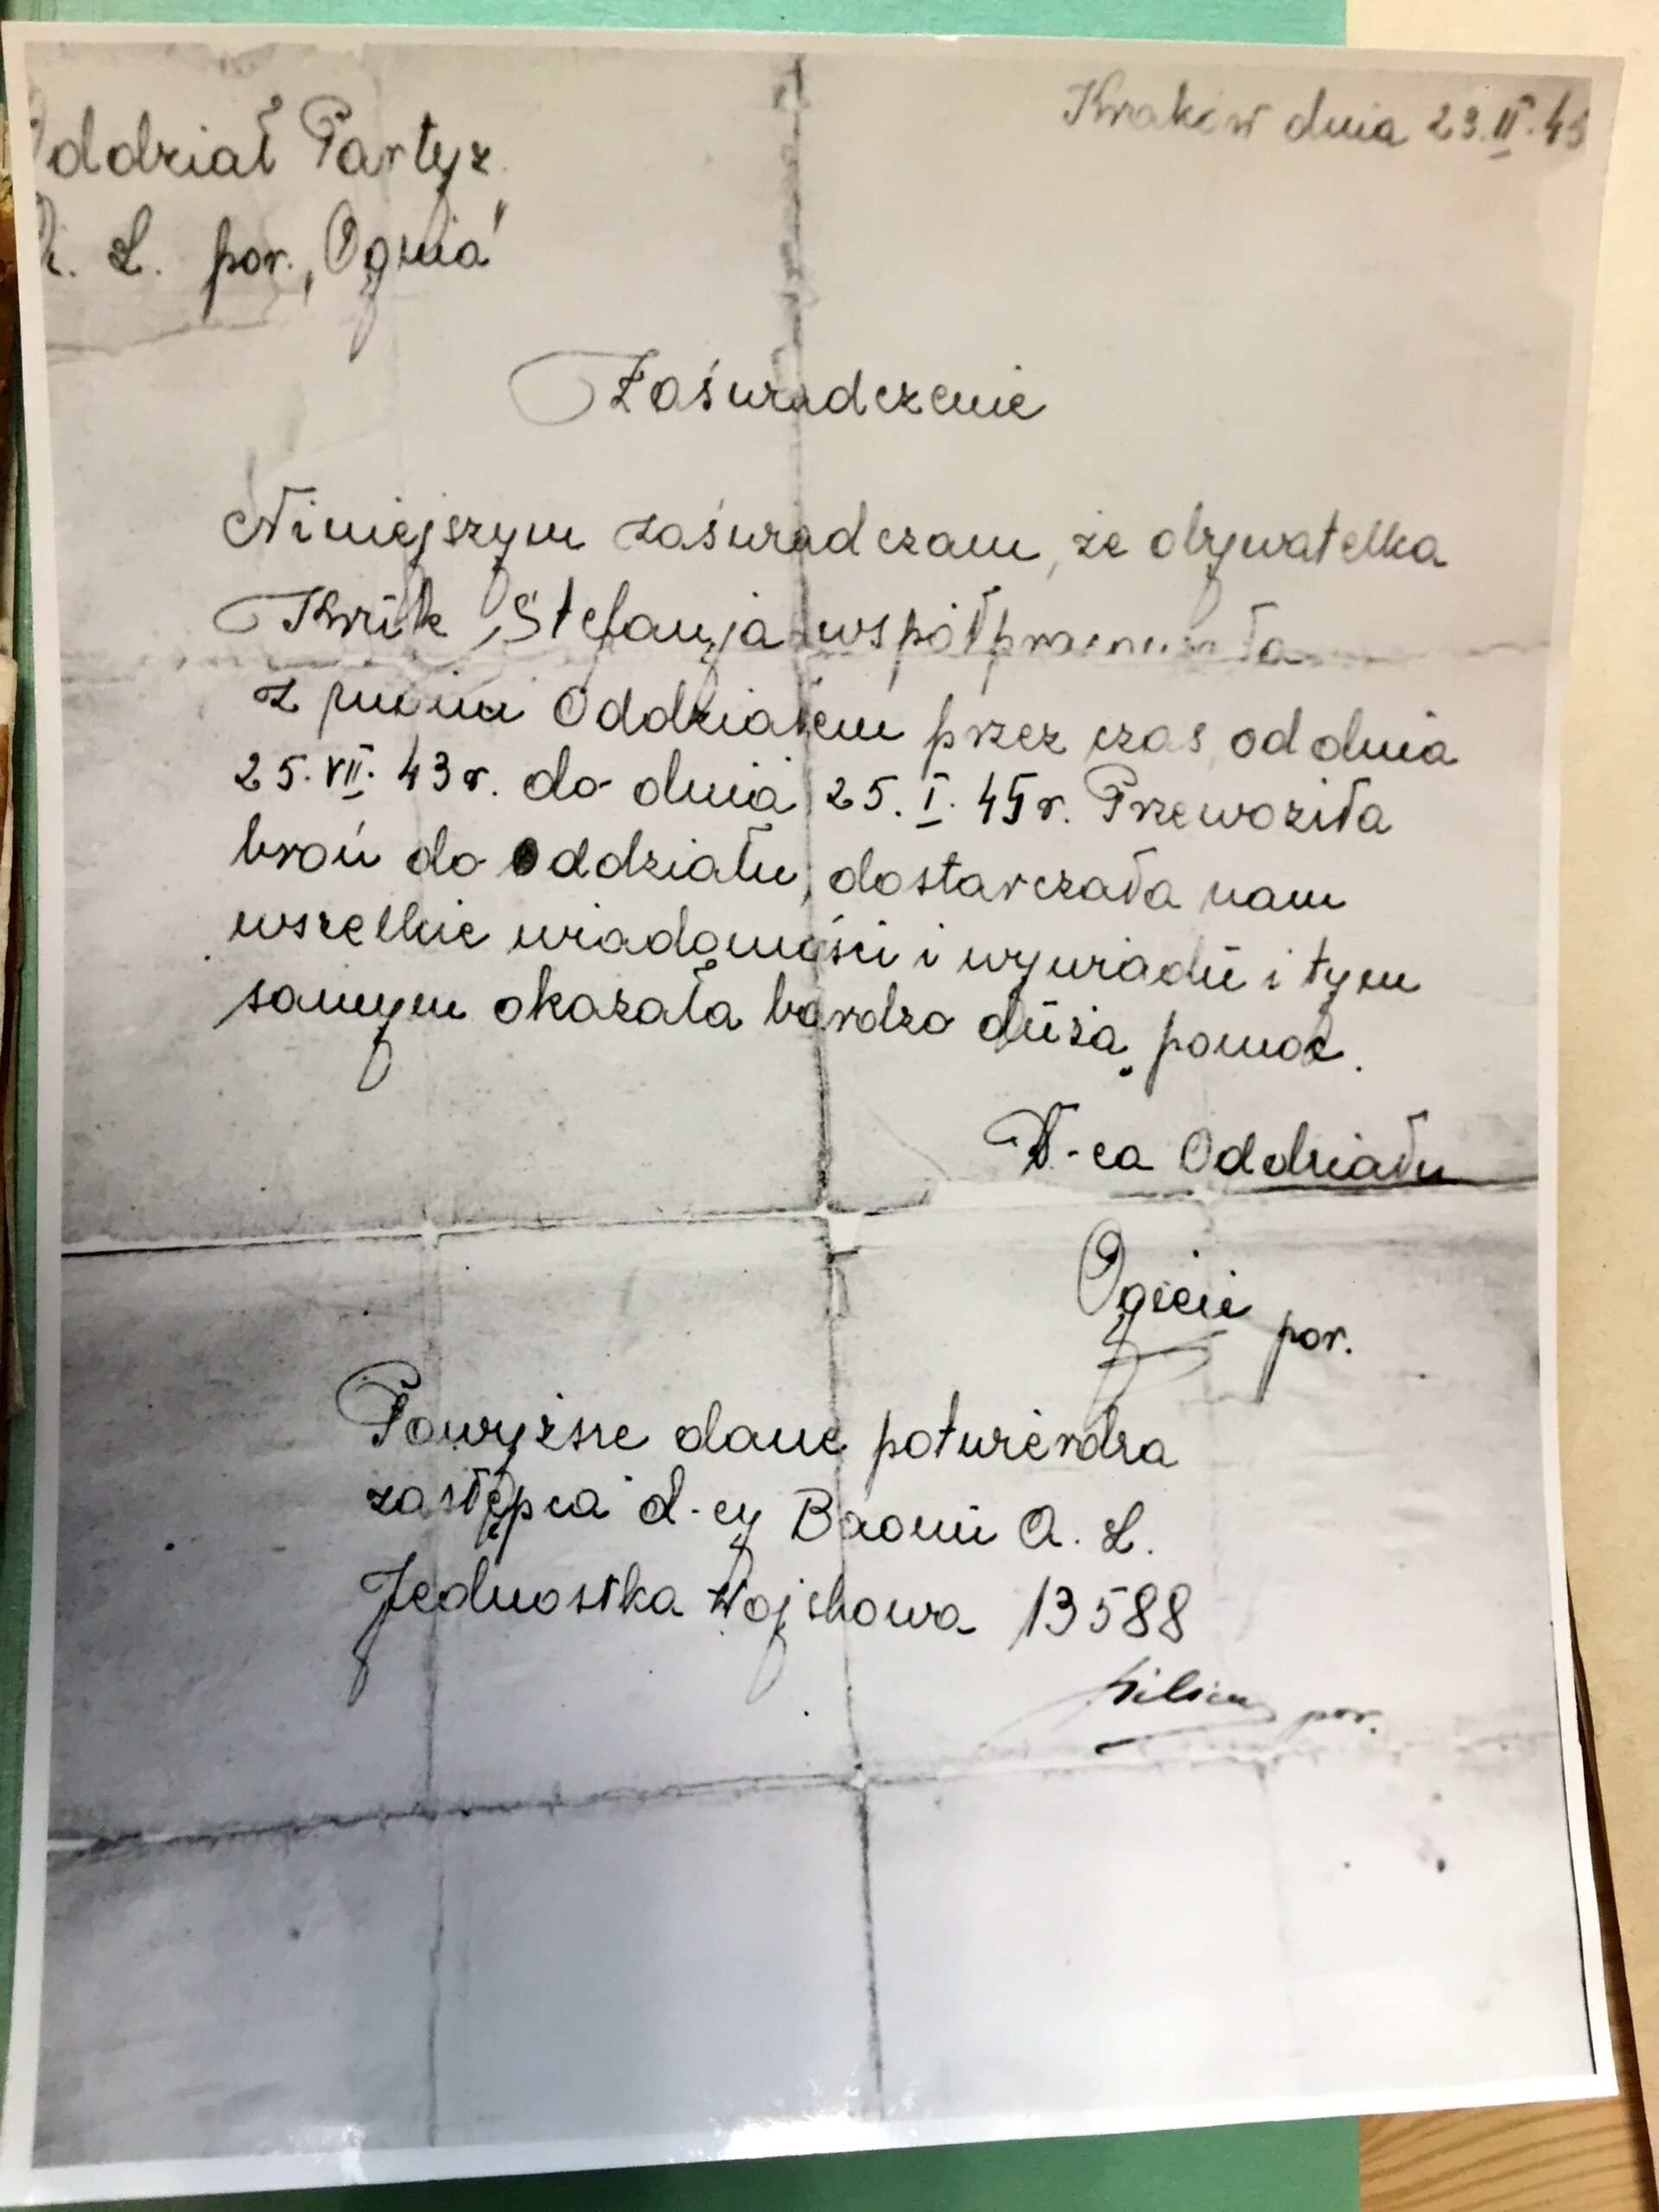 Oddział Partyz.
A. L. por. „Ognia"
Kraków dnia 23.II.45
Zaświadczenie
Niniejszym zaświadczam, że obywatelka
Kruk Stefanja współpracowała
z moim Oddziałem przez czas od dnia
25.VII.43r. do dnia 25.I.45r. Przewoziła
broń do Oddziału, dostarczała nam
wszelkie wiadomości i wywiadu i tym
samym okazała bardzo dużą pomoc.
D-ca Oddziału
Ogień por.
Powyższe dane potwierdza
zastępca d-cy Baonu A. L.
Jednostka Wojskowa 13588
por.